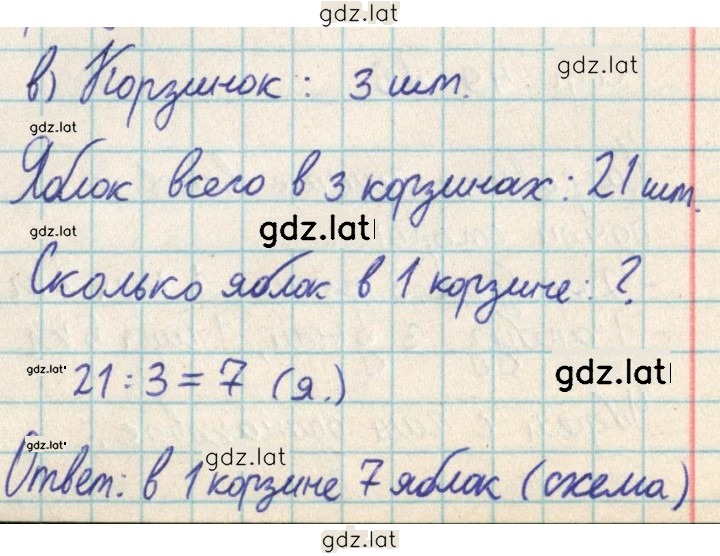 gdz.lat
в) Корзинок: 3 шт.
gdz.lat
gdz.lat
Яблок всего в 3 корзинах: 21 шт.
gdz.lat
gdz.lat
Сколько яблок в 1 корзине: ?
gdz.lat
21 : 3 = 7 (я.)
gdz.lat
gdz.lat
gdz.lat
Ответ: в 1 корзине 7 яблок (схема)
gdz.lat